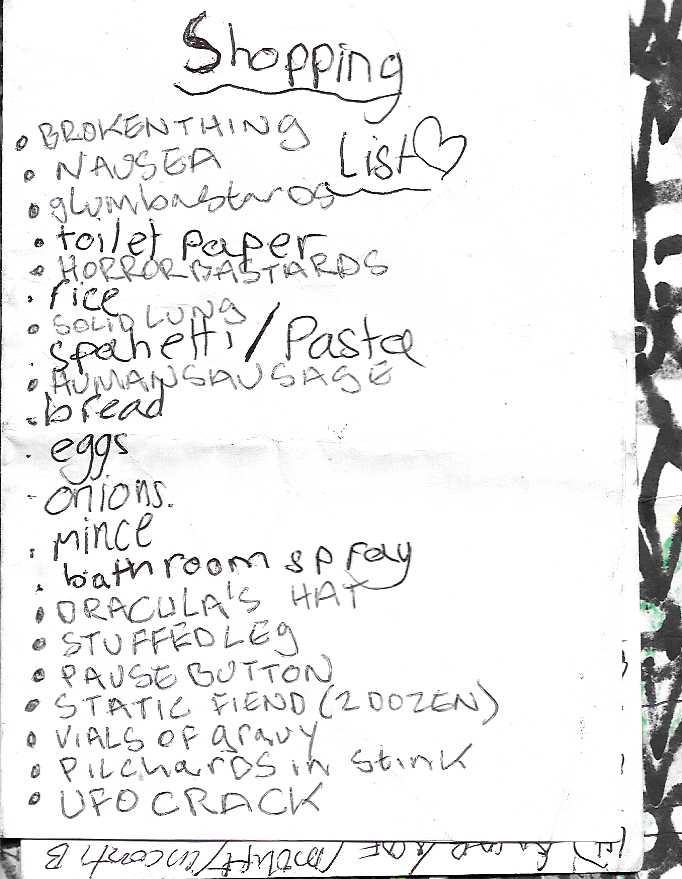 Shopping
List
BROKEN THING
NAUSEA
glumbastards
toilet paper
HORROR BASTARDS
rice
SOLID LUNG
spahetti/Pasta
HUMAN SAUSAGE
bread
eggs
onions.
mince
bathroom spray
DRACULA'S HAT
STUFFED LEG
PAUSE BUTTON
STATIC FIEND (2 DOZEN)
VIALS OF gravy
PILChARDS in Stink
UFO CRACK